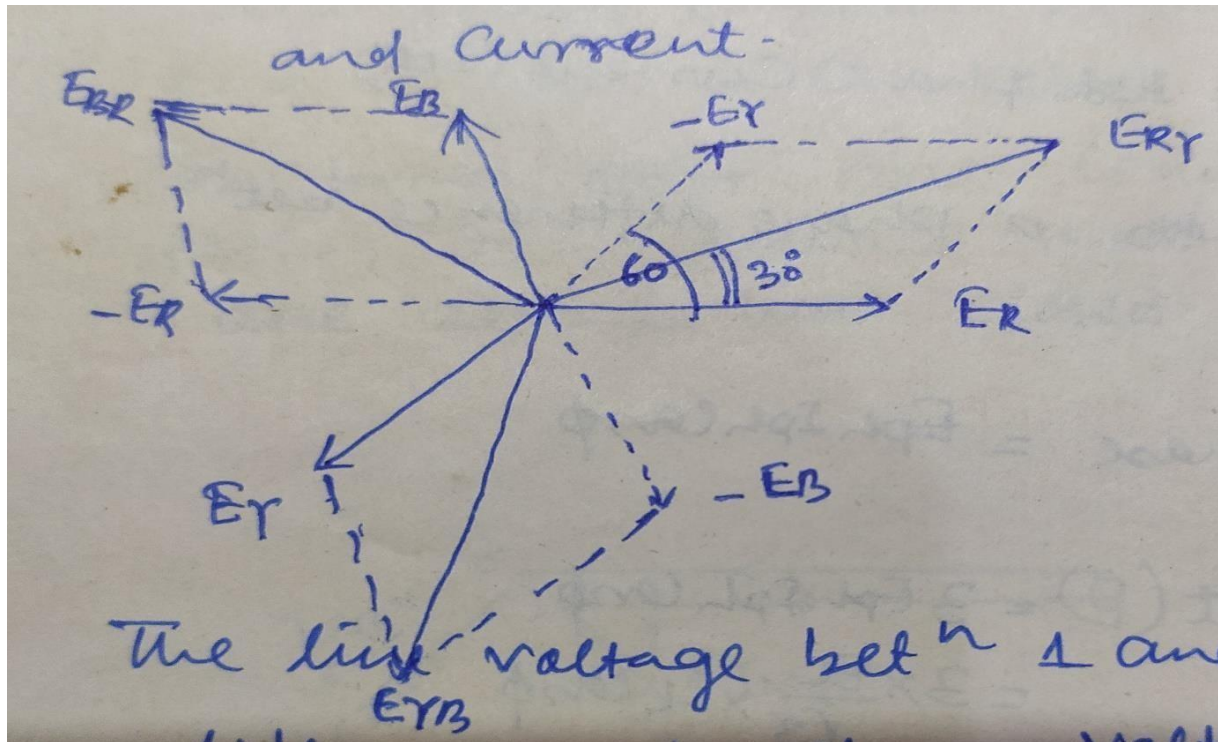 and Current-
EBR EB -EY ERY
60 30°
-ER ER
EY -EB
The line voltage betⁿ 1 an
EYB